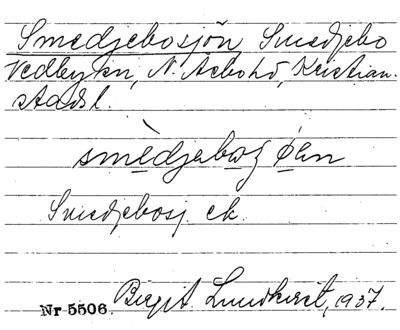 Smedjebosjön Smedjebo
Vedby sn, N. Åsbo hd, Kristian-
stads l.
smèdjebosj øen
Smedjebosj ek.
Birgit Lundkvist, 1937.
Nr 5506.